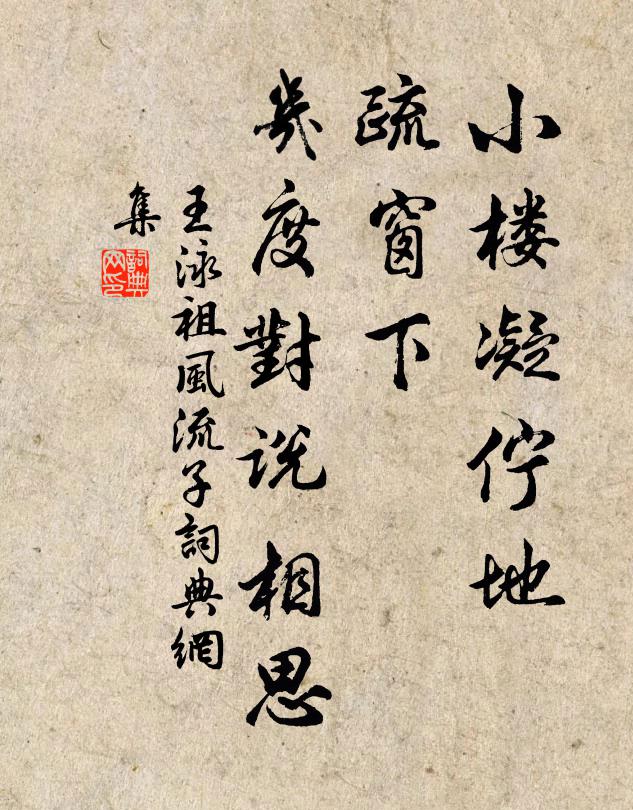 小楼凝佇地
疏窗下
幾度對説相思
王泳祖風流子詞典網
集
詞典
网印